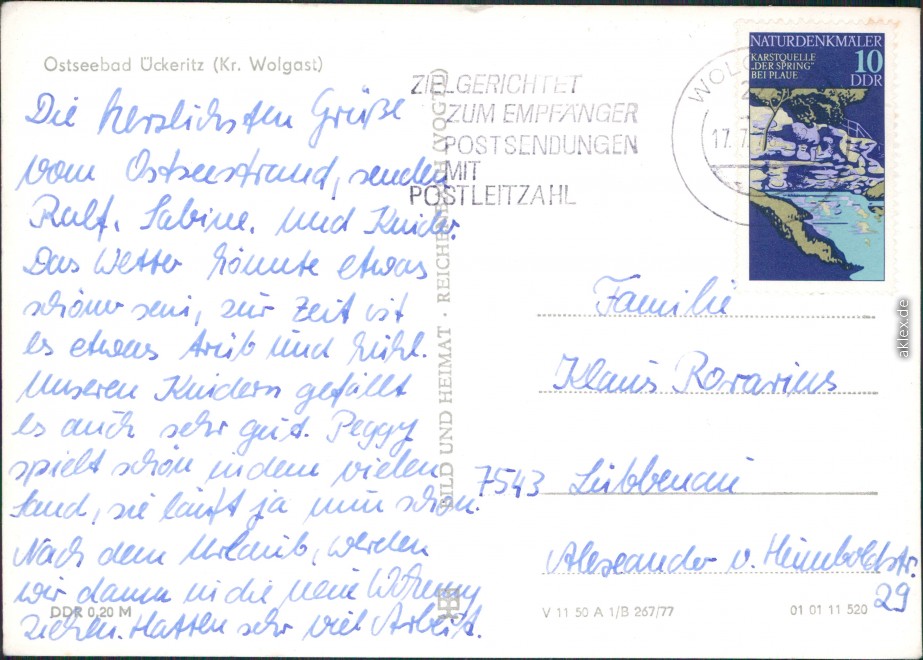 Ostseebad Ückeritz (Kr. Wolgast)
Die herzlichsten Grüße
vom Ostseestrand, senden
Ralf, Sabine, und Kinder.
Das Wetter könnte etwas
schöner sein, zur Zeit ist
es etwas trüb und kühl.
Unseren Kindern gefällt
es auch sehr gut. Peggy
spielt schön in dem vielen
Sand, sie läuft ja nun schon.
Nach dem Urlaub, werden
wir dann in die neue Wohnung
ziehen. Hatten sehr viel Arbeit.
DDR 0,20 M
BILD UND HEIMAT · REICHENBACH (VOGTL)
ZIELGERICHTET
ZUM EMPFÄNGER
POSTSENDUNGEN
MIT
POSTLEITZAHL
WOLG
17.7.
NATURDENKMÄLER
KARSTQUELLE
„DER SPRING“
BEI PLAUE
10
DDR
Familie
Klaus Rorarius
7543 Lübbenau
Alexander v. Humboldtstr.
29
V 11 50 A 1/B 267/77
01 01 11 520
aklex.de